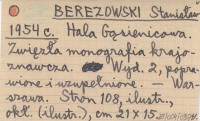 BEREZOWSKI Stanisław
1954 c. Hala Gąsienicowa.
Zwięzła monografia krajo-
znawcza. Wyd. 2, popra-
wione i uzupełnione. — War-
szawa. Stron 108, ilustr.,
okł. (ilustr.), cm 21 x 15.